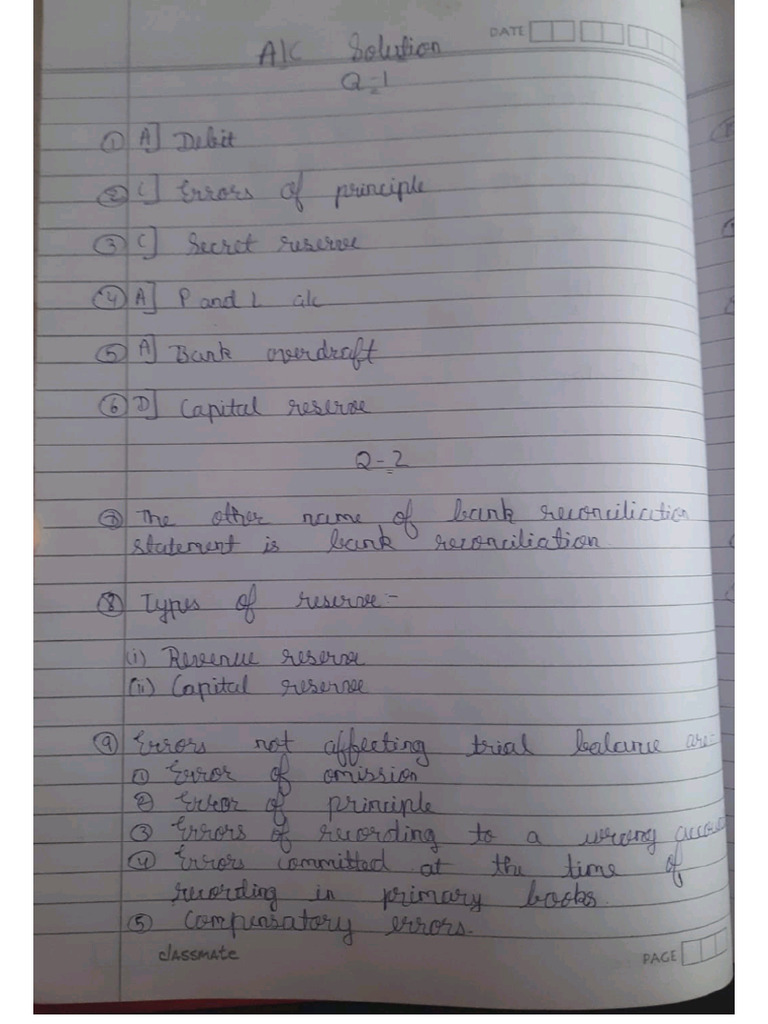 DATE
A/C Solution
Q-1
① A] Debit
② C] Errors of principle
③ C] Secret reserve
④ A] P and L a/c
⑤ A] Bank overdraft
⑥ D] Capital reserve
Q-2
⑦ The other name of bank reconciliation
statement is bank reconciliation
⑧ Types of reserve:-
(i) Revenue reserve
(ii) Capital reserve
⑨ Errors not affecting trial balance are:-
① Error of omission
② Error of principle
③ Errors of recording to a wrong account
④ Errors committed at the time of
recording in primary books.
⑤ Compensatory errors.
classmate PAGE